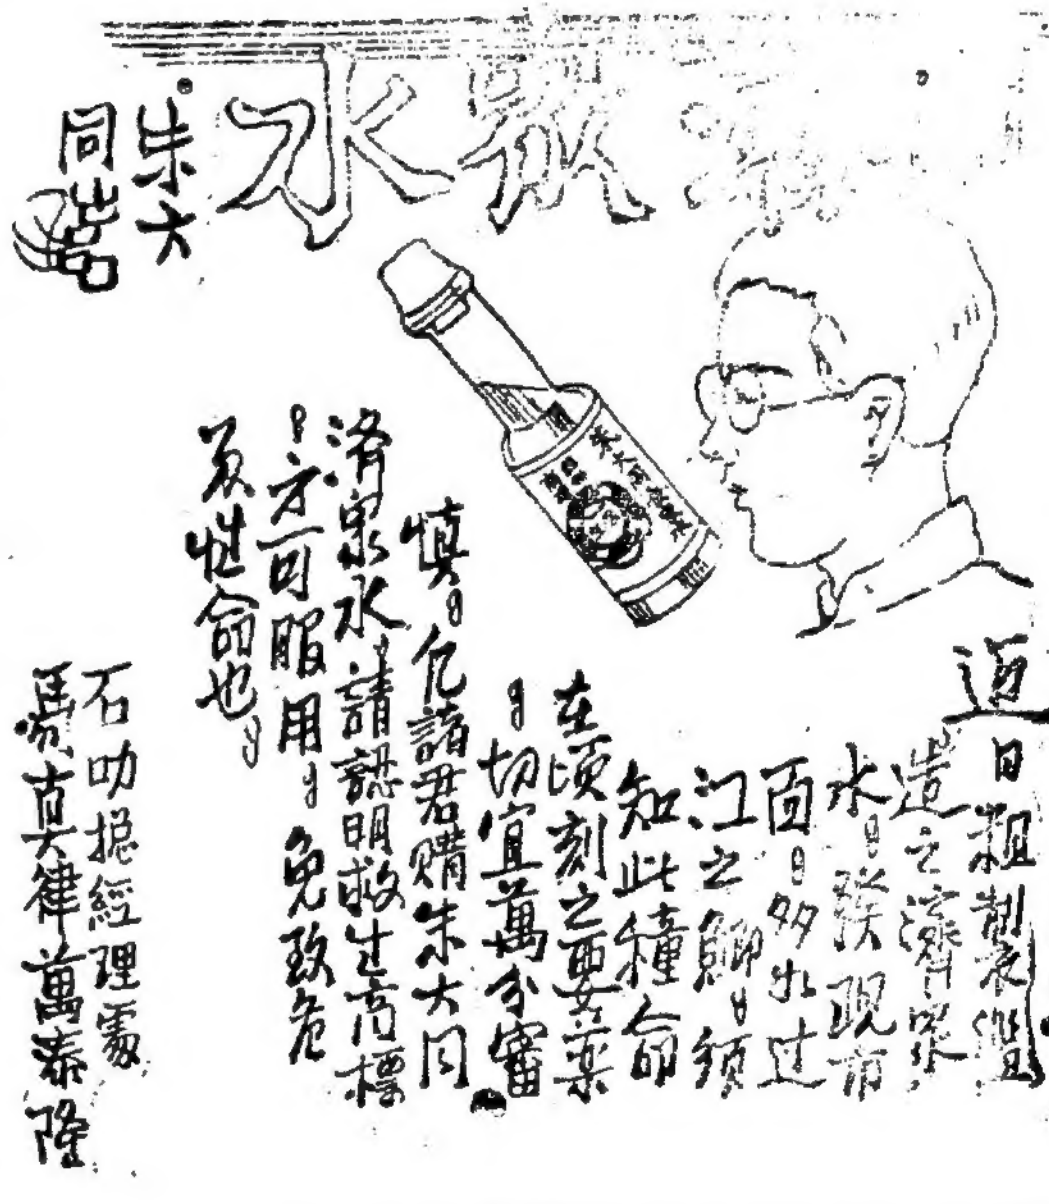 濟衆水
朱大
同
日粗製濫
造之濟眾
水。發現市
面。多如过
江之鯽。須
知此種命
在頃刻之要藥
。切宜萬分審
慎。凡諸君購朱大同
濟衆水。請認明救生商標
。方可服用。免致危
及性命也。
石叻總經理處
律萬泰隆